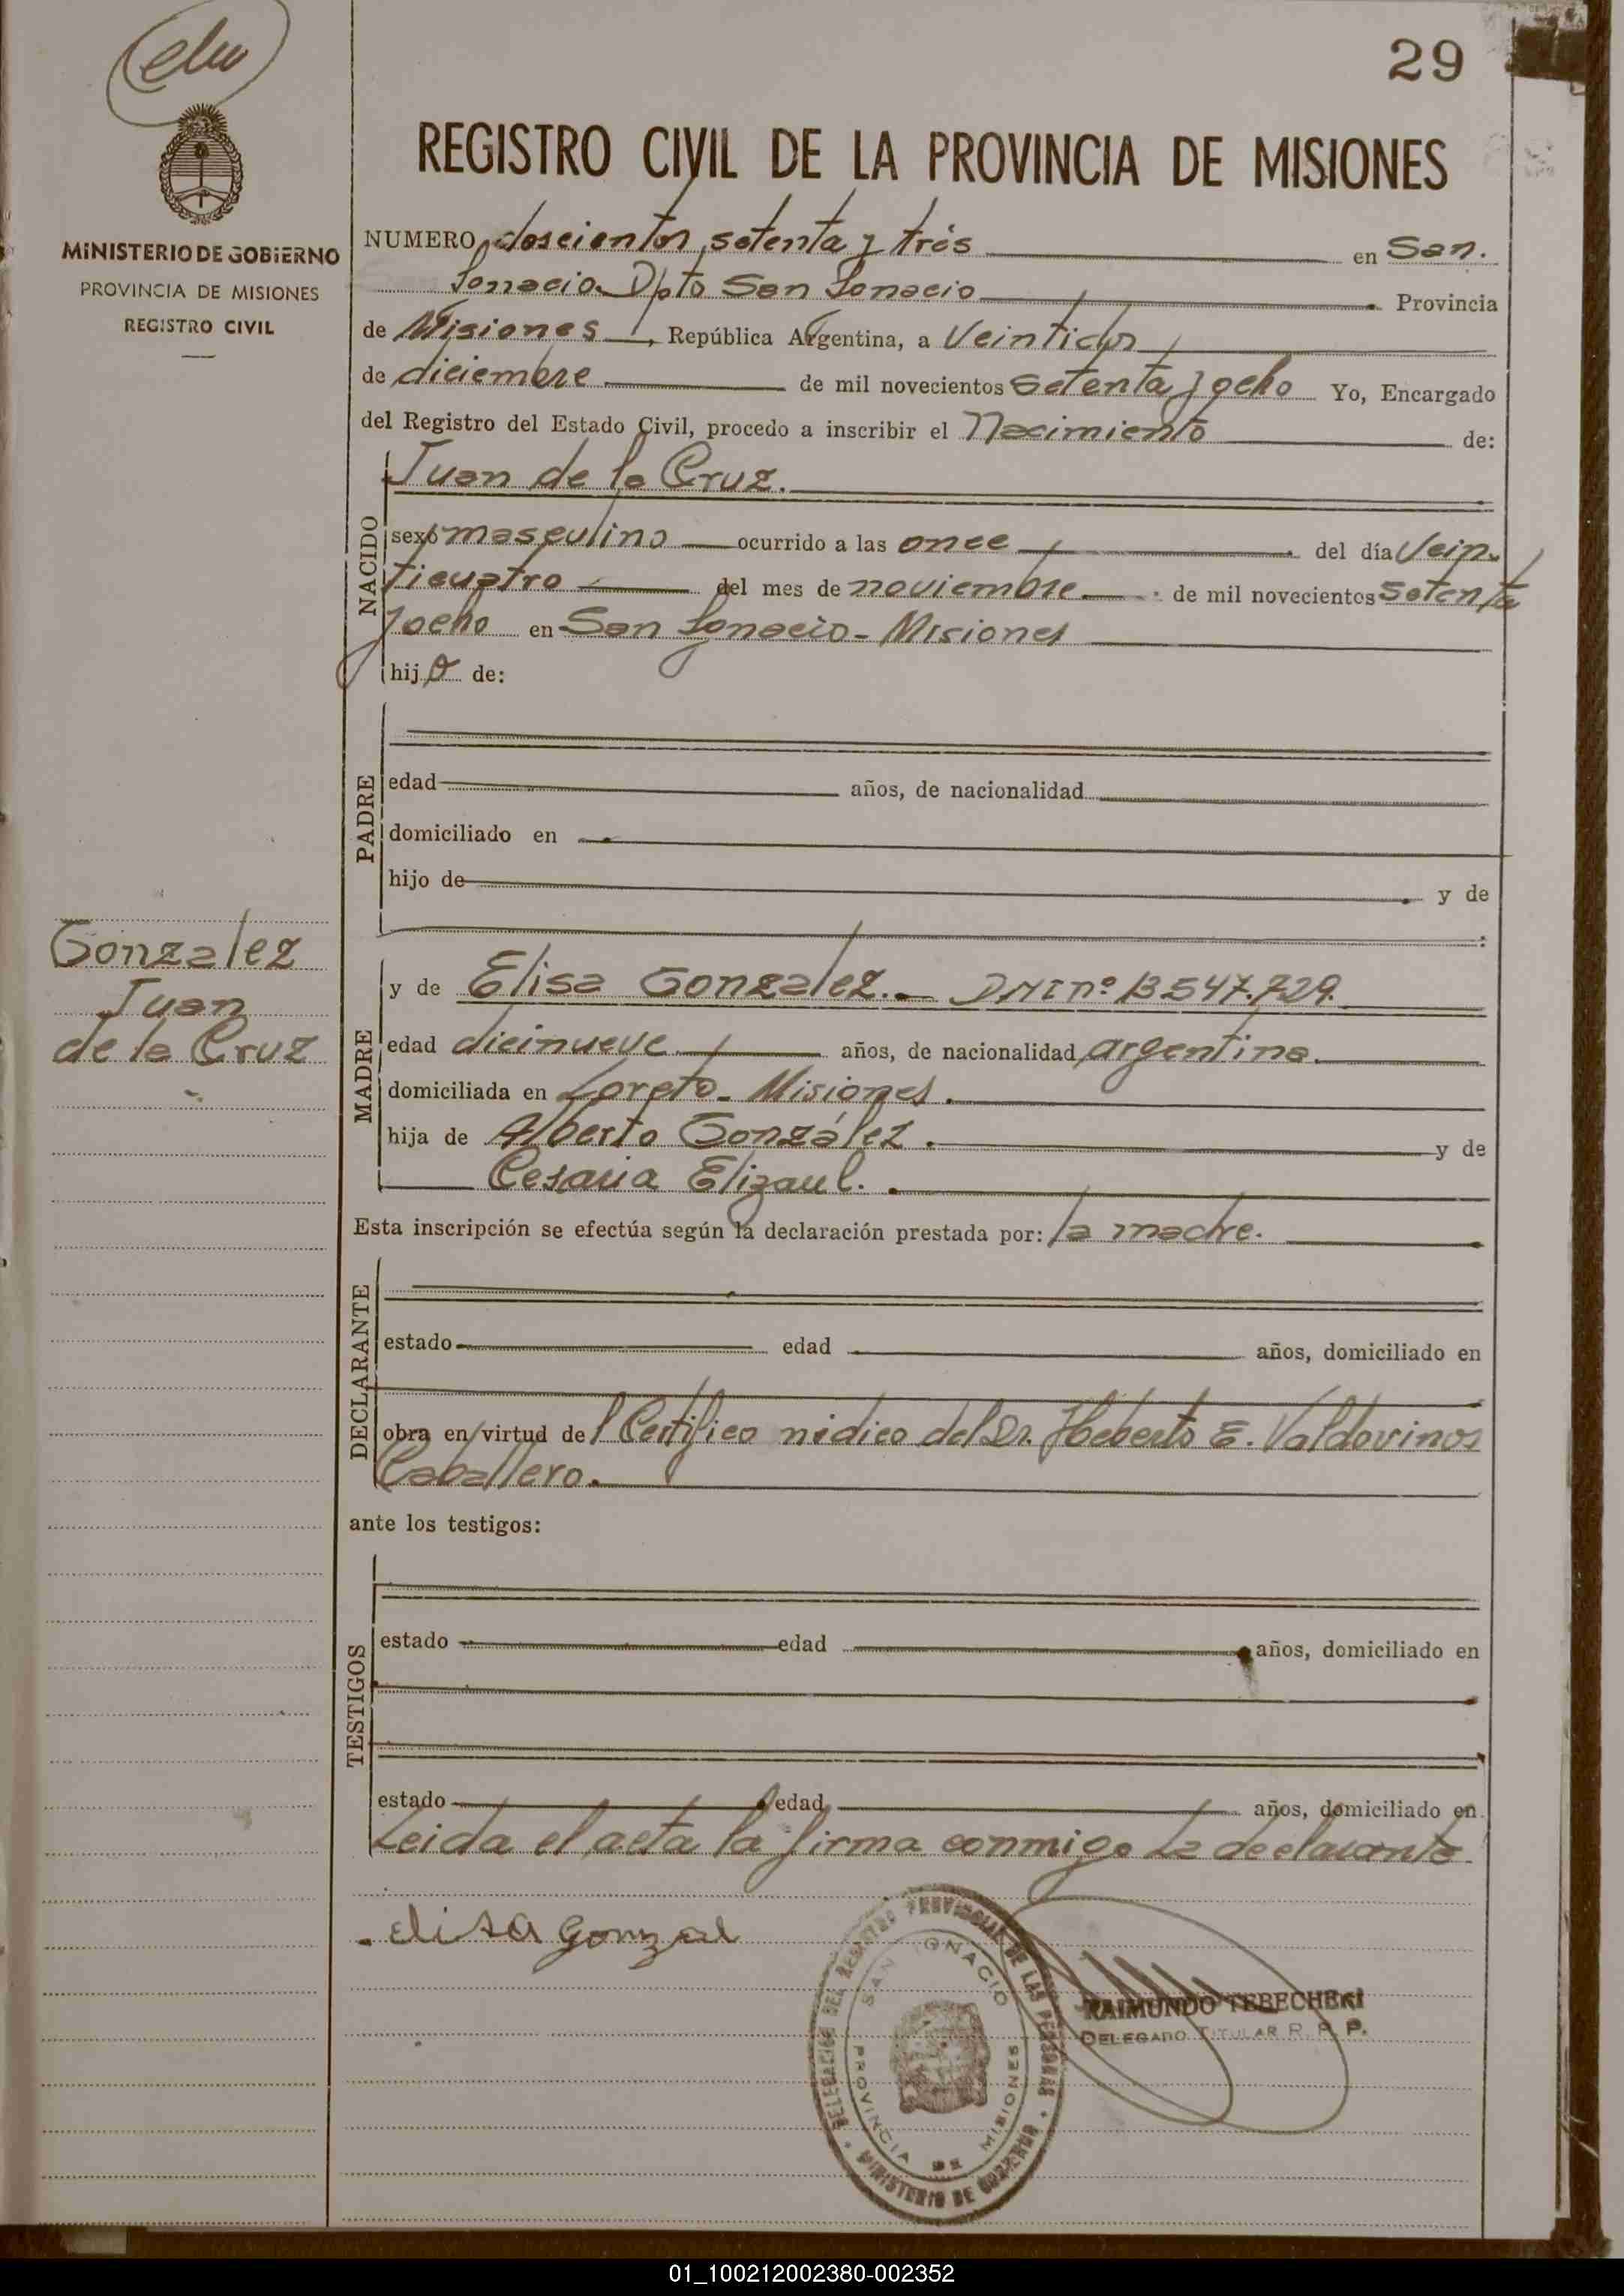 29
REGISTRO CIVIL DE LA PROVINCIA DE MISIONES
MINISTERIO DE GOBIERNO
PROVINCIA DE MISIONES
REGISTRO CIVIL
NUMERO doscientos setenta y trés en San.
Ignacio Dpto San Ignacio Provincia
de Misiones, República Argentina, a Veintidos
de diciembre de mil novecientos setenta y ocho Yo, Encargado
del Registro del Estado Civil, procedo a inscribir el Nacimiento de:
NACIDO
Juan de la Cruz.
sexo masculino ocurrido a las once del día Vein-
ticuatro del mes de noviembre de mil novecientos setenta
y ocho en San Ignacio - Misiones
hijo de:
PADRE
edad años, de nacionalidad
domiciliado en
hijo de y de
Gonzalez
Juan
de la Cruz
MADRE
y de Elisa Gonzalez. - DNI nº 13547.729.
edad dicinueve años, de nacionalidad argentina.
domiciliada en Loreto - Misiones.
hija de Alberto González. y de
Cesaria Elizaul.
Esta inscripción se efectúa según la declaración prestada por: la madre.
DECLARANTE
estado edad años, domiciliado en
obra en virtud del Certifico médico del Dr. Heberto E. Valdovinos
Caballero.
ante los testigos:
TESTIGOS
estado edad años, domiciliado en
estado edad años, domiciliado en
Leida el acta la firma conmigo La declarante.
Elisa Gonzal
DELEGACION DEL REGISTRO PROVINCIAL DE LAS PERSONAS
SAN IGNACIO
PROVINCIA DE MISIONES
MINISTERIO DE GOBIERNO
RAIMUNDO TEBECHERI
DELEGADO TITULAR R. P. P.
01_100212002380-002352